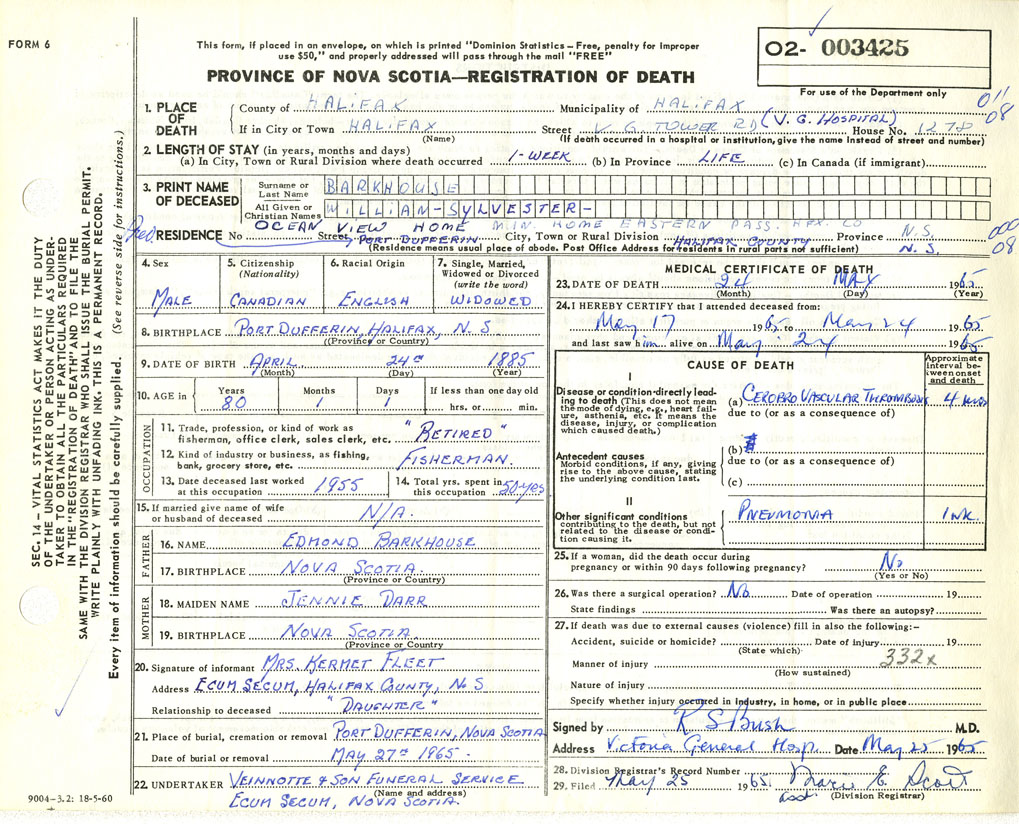 FORM 6
This form, if placed in an envelope, on which is printed "Dominion Statistics – Free, penalty for improper
use $50," and properly addressed will pass through the mail "FREE"
PROVINCE OF NOVA SCOTIA—REGISTRATION OF DEATH
02- 003425
For use of the Department only
011
08
1. PLACE OF DEATH
County of HALIFAX Municipality of HALIFAX
(V. G. HOSPITAL)
If in City or Town HALIFAX Street V. G. TOWER RD House No. 1278
(Name) (If death occurred in a hospital or institution, give the name instead of street and number)
2. LENGTH OF STAY (in years, months and days)
(a) In City, Town or Rural Division where death occurred 1-WEEK (b) In Province LIFE (c) In Canada (if immigrant)
3. PRINT NAME OF DECEASED
Surname or Last Name BARKHOUSE
All Given or Christian Names WILLIAN-SYLVESTER-
OCEAN VIEW HOME MIN. HOME EASTERN PASS. HFX. CO N.S.
RESIDENCE No Street PORT DUFFERIN City, Town or Rural Division HALIFAX COUNTY Province N.S.
(Residence means usual place of abode. Post Office Address for residents in rural parts not sufficient)
000
08
4. Sex
MALE
5. Citizenship (Nationality)
CANADIAN
6. Racial Origin
ENGLISH
7. Single, Married, Widowed or Divorced (write the word)
WIDOWED
8. BIRTHPLACE PORT DUFFERIN, HALIFAX, N.S
(Province or Country)
9. DATE OF BIRTH APRIL 24th 1885
(Month) (Day) (Year)
10. AGE in Years Months Days If less than one day old
80 1 1 hrs. or min.
OCCUPATION
11. Trade, profession, or kind of work as fisherman, office clerk, sales clerk, etc. "RETIRED"
12. Kind of industry or business, as fishing, bank, grocery store, etc. FISHERMAN.
13. Date deceased last worked at this occupation 1955
14. Total yrs. spent in this occupation 50-yrs
15. If married give name of wife or husband of deceased N/A.
FATHER
16. NAME EDMOND BARKHOUSE
17. BIRTHPLACE NOVA SCOTIA.
(Province or Country)
MOTHER
18. MAIDEN NAME JENNIE DARR
19. BIRTHPLACE NOVA SCOTIA.
(Province or Country
20. Signature of informant MRS. KERMET FLEET
Address ECUM SECUM, HALIFAX COUNTY, N.S
Relationship to deceased "DAUGHTER"
21. Place of burial, cremation or removal PORT DUFFERIN, NOVA SCOTIA
Date of burial or removal MAY 27th 1965-
22. UNDERTAKER VEINNOTTE & SON FUNERAL SERVICE
(Name and address)
ECUM SECUM, NOVA SCOTIA.
9004-3.2: 18-5-60
MEDICAL CERTIFICATE OF DEATH
23. DATE OF DEATH 24 MAY 1965
(Month) (Day) (Year)
24. I HEREBY CERTIFY that I attended deceased from:
May 17 1965 to May 24 1965
and last saw him alive on May 24 1965
CAUSE OF DEATH
Approximate interval between onset and death
I
Disease or condition directly leading to death (This does not mean the mode of dying, e.g., heart failure, asthenia, etc. It means the disease, injury, or complication which caused death.)
(a) CEREBRO VASCULAR THROMBOSIS 4 wks
due to (or as a consequence of)
Antecedent causes
Morbid conditions, if any, giving rise to the above cause, stating the underlying condition last.
(b)
due to (or as a consequence of)
(c)
II
Other significant conditions contributing to the death, but not related to the disease or condition causing it.
PNEUMONIA 1 WK.
25. If a woman, did the death occur during pregnancy or within 90 days following pregnancy? No
(Yes or No)
26. Was there a surgical operation? No Date of operation 19
State findings Was there an autopsy?
27. If death was due to external causes (violence) fill in also the following:-
Accident, suicide or homicide? Date of injury 19
(State which)
332x
Manner of injury
(How sustained)
Nature of injury
Specify whether injury occurred in industry, in home, or in public place
Signed by R S Bush M.D.
Address Victoria General Hosp. Date May 25 1965
28. Division Registrar's Record Number
29. Filed May 25 1965 Marie E Scott
Asst. (Division Registrar)
SEC. 14 – VITAL STATISTICS ACT MAKES IT THE DUTY
OF THE UNDERTAKER OR PERSON ACTING AS UNDER-
TAKER TO OBTAIN ALL THE PARTICULARS REQUIRED
IN THE "REGISTRATION OF DEATH" AND TO FILE THE
SAME WITH THE DIVISION REGISTRAR WHO SHALL ISSUE THE BURIAL PERMIT.
WRITE PLAINLY WITH UNFADING INK. THIS IS A PERMANENT RECORD.
Every item of information should be carefully supplied. (See reverse side for instructions.)